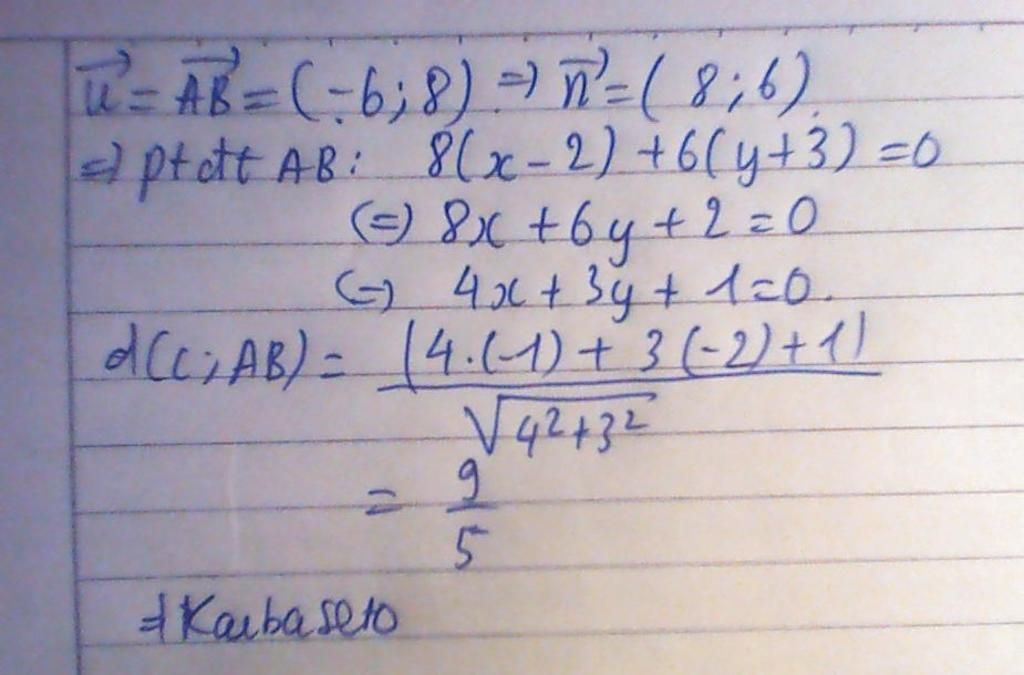 u⃗ = AB⃗ = (-6; 8) ⇒ n⃗ = ( 8; 6)
⇒ ptđt AB: 8(x - 2) + 6(y + 3) = 0
(=) 8x + 6y + 2 = 0
(=) 4x + 3y + 1 = 0.
d(C; AB) = |4.(-1) + 3(-2) + 1|
√4² + 3²
= 9
5
⇒ Kaibaseto